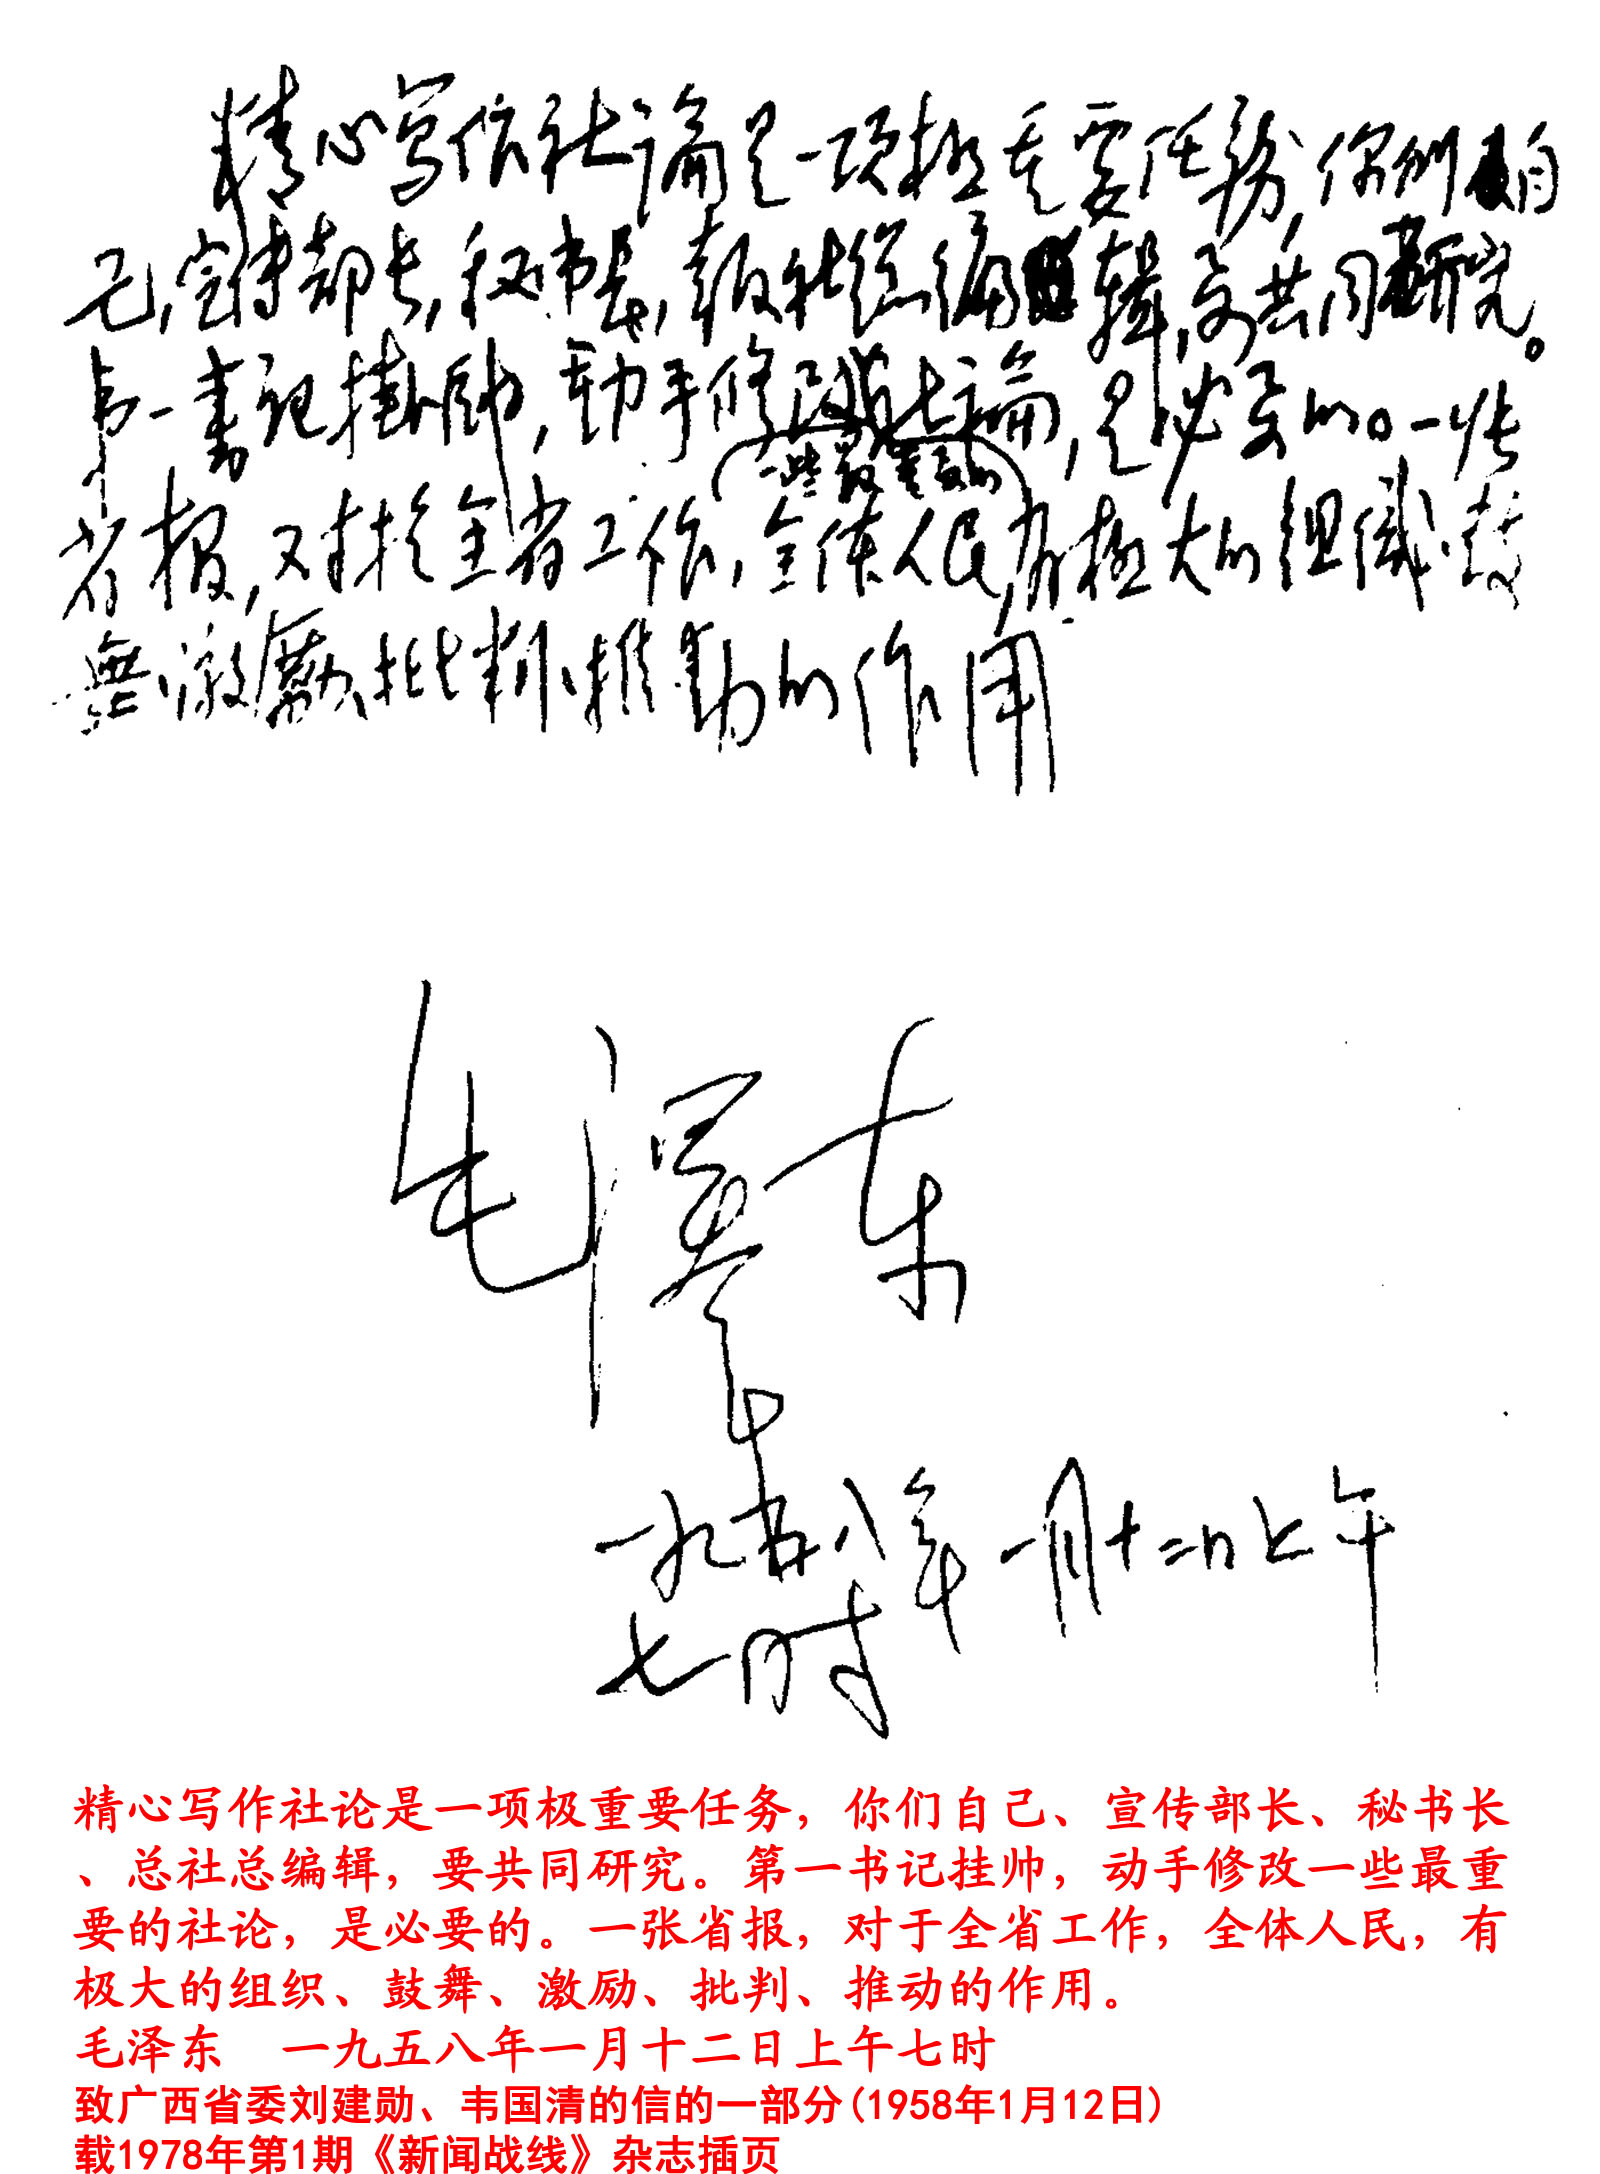 精心写作社论是一项极重要任务,你们自
己,宣传部长,秘书長,报社总编辑,要共同研究。
第一書记掛帥,動手修改社論,是必要的。一张
一些最重要的
省报,对於全省工作,全体人民,有极大的组織、鼓
舞、激励、批判、推動的作用
毛泽东
一九五八年一月十二日上午
七时
精心写作社论是一项极重要任务,你们自己、宣传部长、秘书长
、总社总编辑,要共同研究。第一书记挂帅,动手修改一些最重
要的社论,是必要的。一张省报,对于全省工作,全体人民,有
极大的组织、鼓舞、激励、批判、推动的作用。
毛泽东 一九五八年一月十二日上午七时
致广西省委刘建勋、韦国清的信的一部分(1958年1月12日)
载1978年第1期《新闻战线》杂志插页